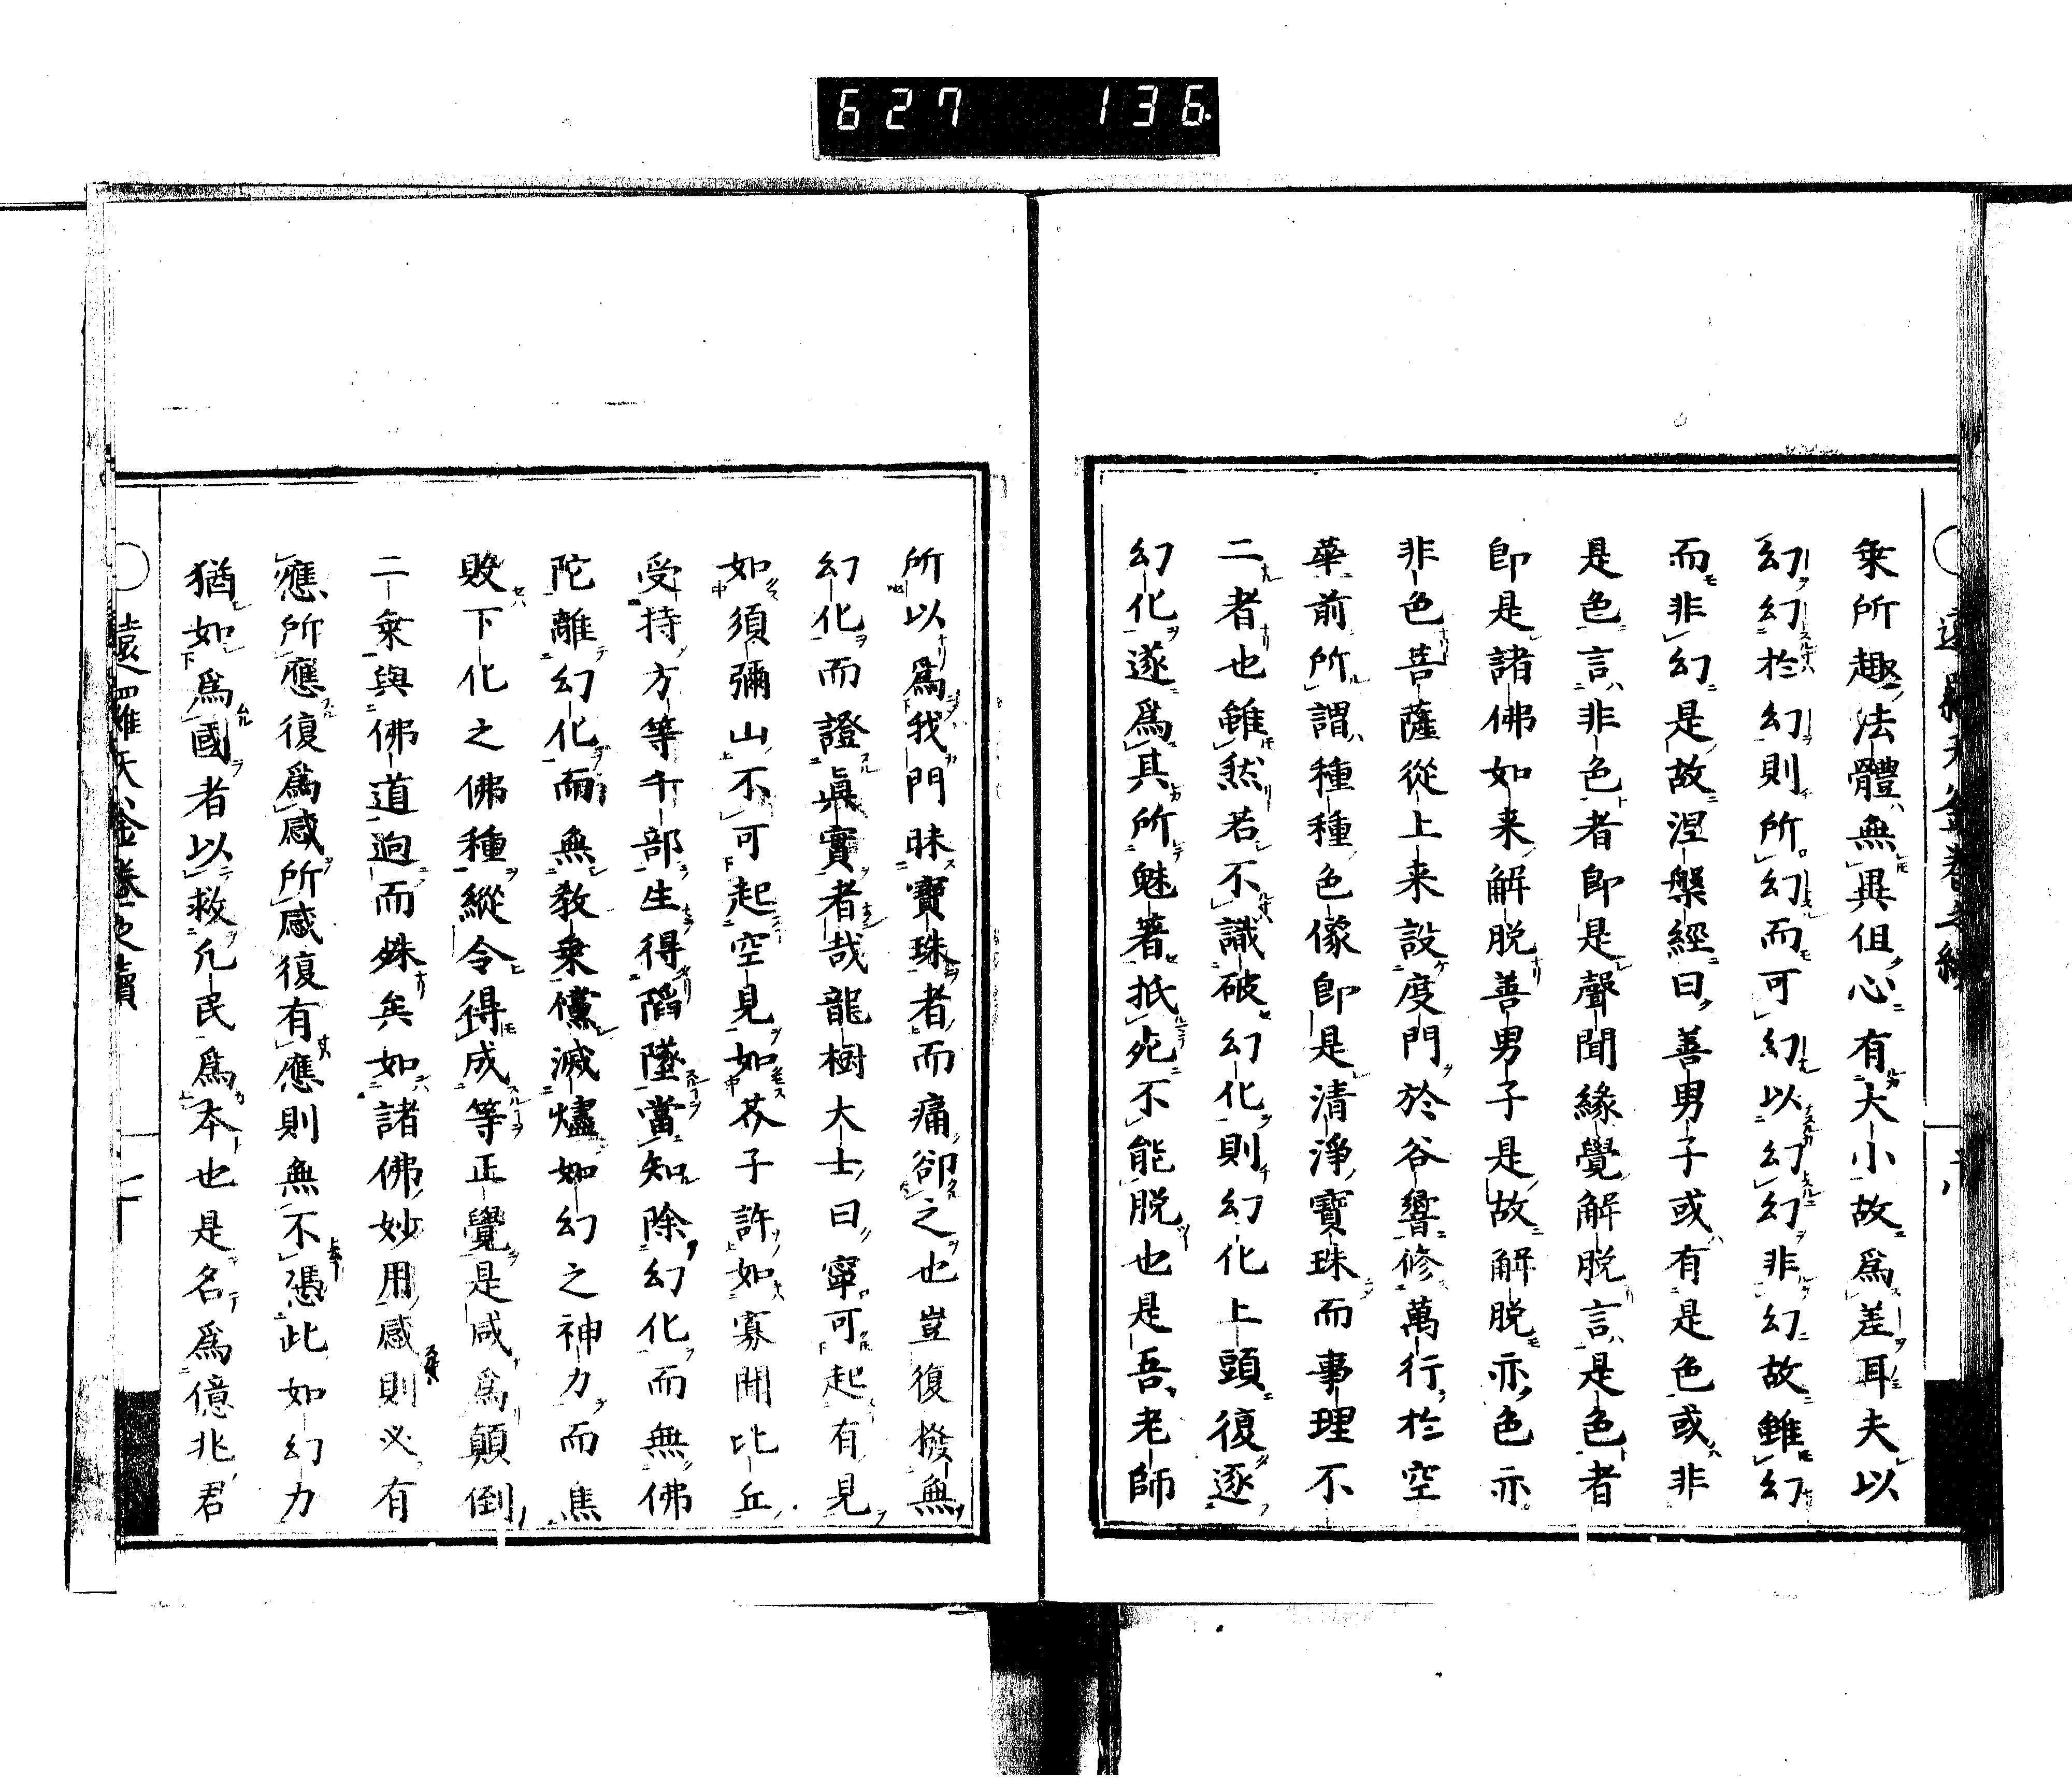 627 136.
乗所趣法體無異但心有大小故爲差耳夫以
幻幻於幻則所幻而可幻以幻幻非幻故雖幻
而非幻是故涅槃經曰善男子或有是色或非
是色言非色者即是聲聞緣覺解脱言是色者
即是諸佛如来解脱善男子是故解脱亦色亦
非色菩薩從上来設度門於谷響修萬行於空
華前所謂種種色像即是清淨寶珠而事理不
二者也雖然若不識破幻化則幻化上頭復逐
幻化遂爲其所魅著抵死不能脱也是吾老師
所以爲我門昧寶珠者而痛卻之也豈復撥無
幻化而證眞實者哉龍樹大士曰寧可起有見
如須彌山不可起空見如芥子許如寡聞比丘
受持方等千部生得䧟墜當知除幻化而無佛
陀離幻化而無教乗儻滅燼如幻之神力而焦
敗下化之佛種縱令得成等正覺是咸爲顛倒
二乗與佛道逈而殊矣如諸佛妙用感則必有
應所應復爲感所感復有應則無不憑此如幻力
猶如爲國者以救凢民爲本也是名爲億兆君
遠羅天釜卷之續